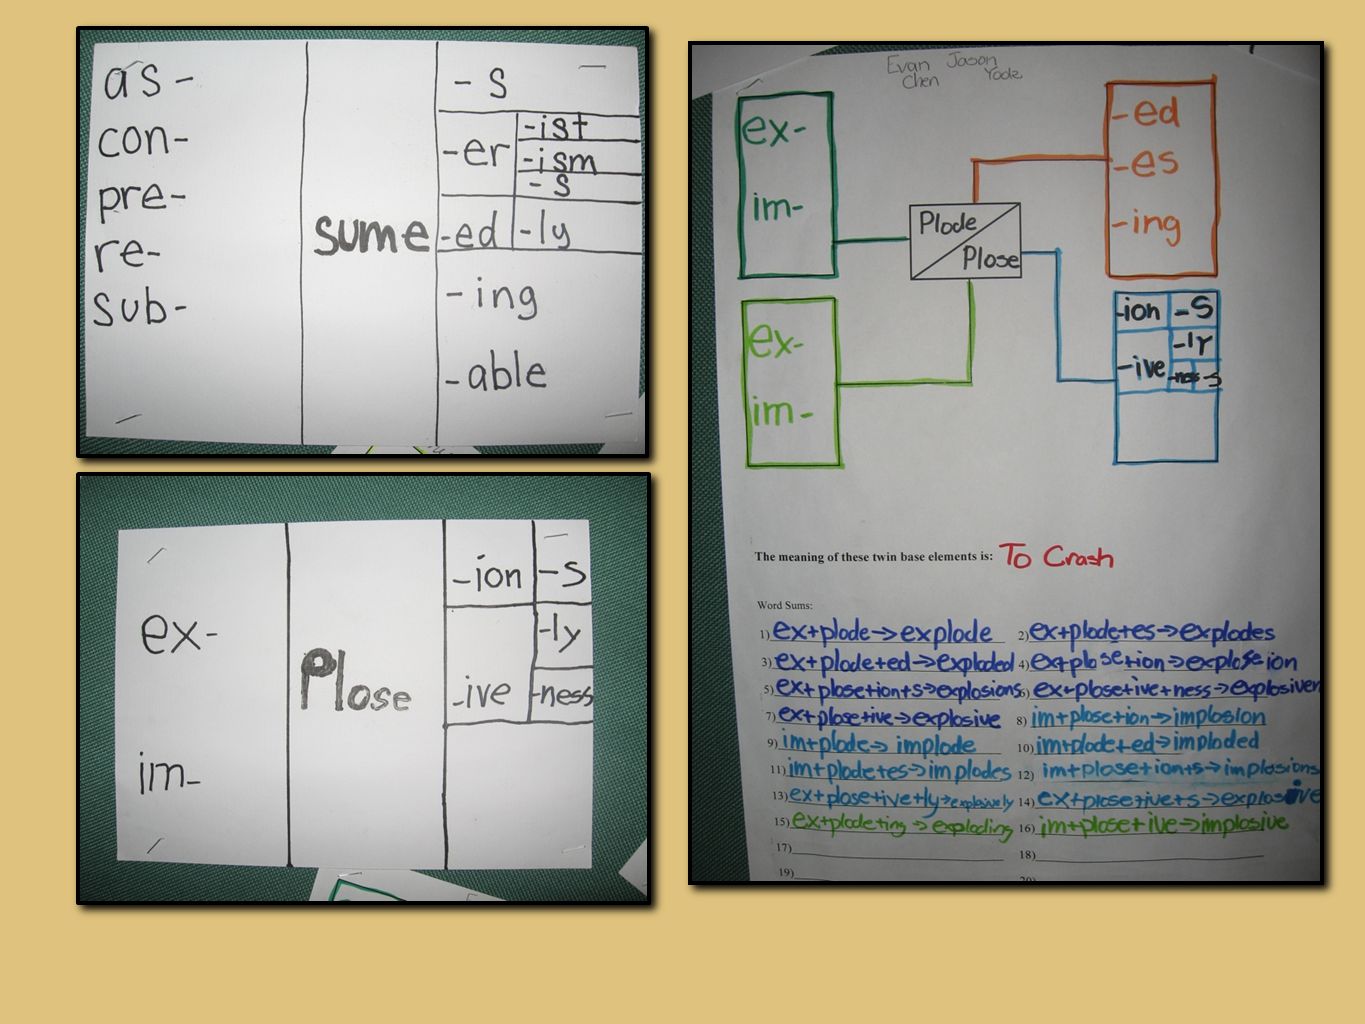 as-
con-
pre-
re-
sub-
sume
-s
-er
-ist
-ism
-s
-ed
-ly
-ing
-able
ex-
im-
Plose
-ion
-s
-ive
-ly
-ness
Evan Jason
Chen Yoda
ex-
im-
ex-
im-
Plode
Plose
-ed
-es
-ing
-ion -S
-ive
-ly
-ness -s
The meaning of these twin base elements is: To Crash
Word Sums:
1) ex+plode→explode 2) ex+plode+es→explodes
3) ex+plode+ed→exploded 4) ex+plose+ion→explosion
5) ex+plose+ion+s→explosions 6) ex+plose+ive+ness→explosiven
7) ex+plose+ive→explosive 8) im+plose+ion→implosion
9) im+plode→implode 10) im+plode+ed→imploded
11) im+plode+es→implodes 12) im+plose+ion+s→implosions
13) ex+plose+ive+ly→explosively 14) ex+plose+ive+s→explosive
15) ex+plode+ing→exploding 16) im+plose+ive→implosive
17) 18)
19) 20)